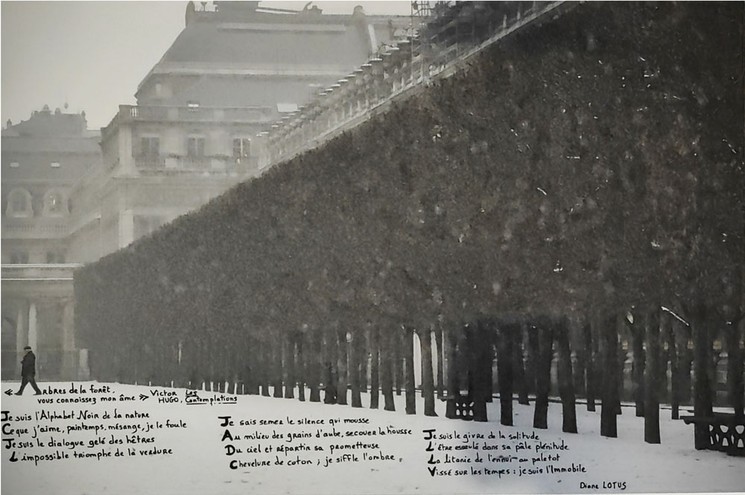 « Arbres de la forêt,
vous connaissez mon âme » Victor HUGO, Les Contemplations
Je suis l'Alphabet Noir de la nature
Ce que j'aime, printemps, mésange, je le foule
Je suis le dialogue gelé des hêtres
L'impossible triomphe de la verdure
Je sais semer le silence qui mousse
Au milieu des grains d'aube, secouer la housse
Du ciel et répartir sa
Chevelure de coton ; je siffle l'ombre
Je suis le givre de la solitude
L'être esseulé dans sa pâle plénitude
La litanie de l'ennui au paletot
Vissé sur les tempes : je suis l'Immobile
Diane LOTUS